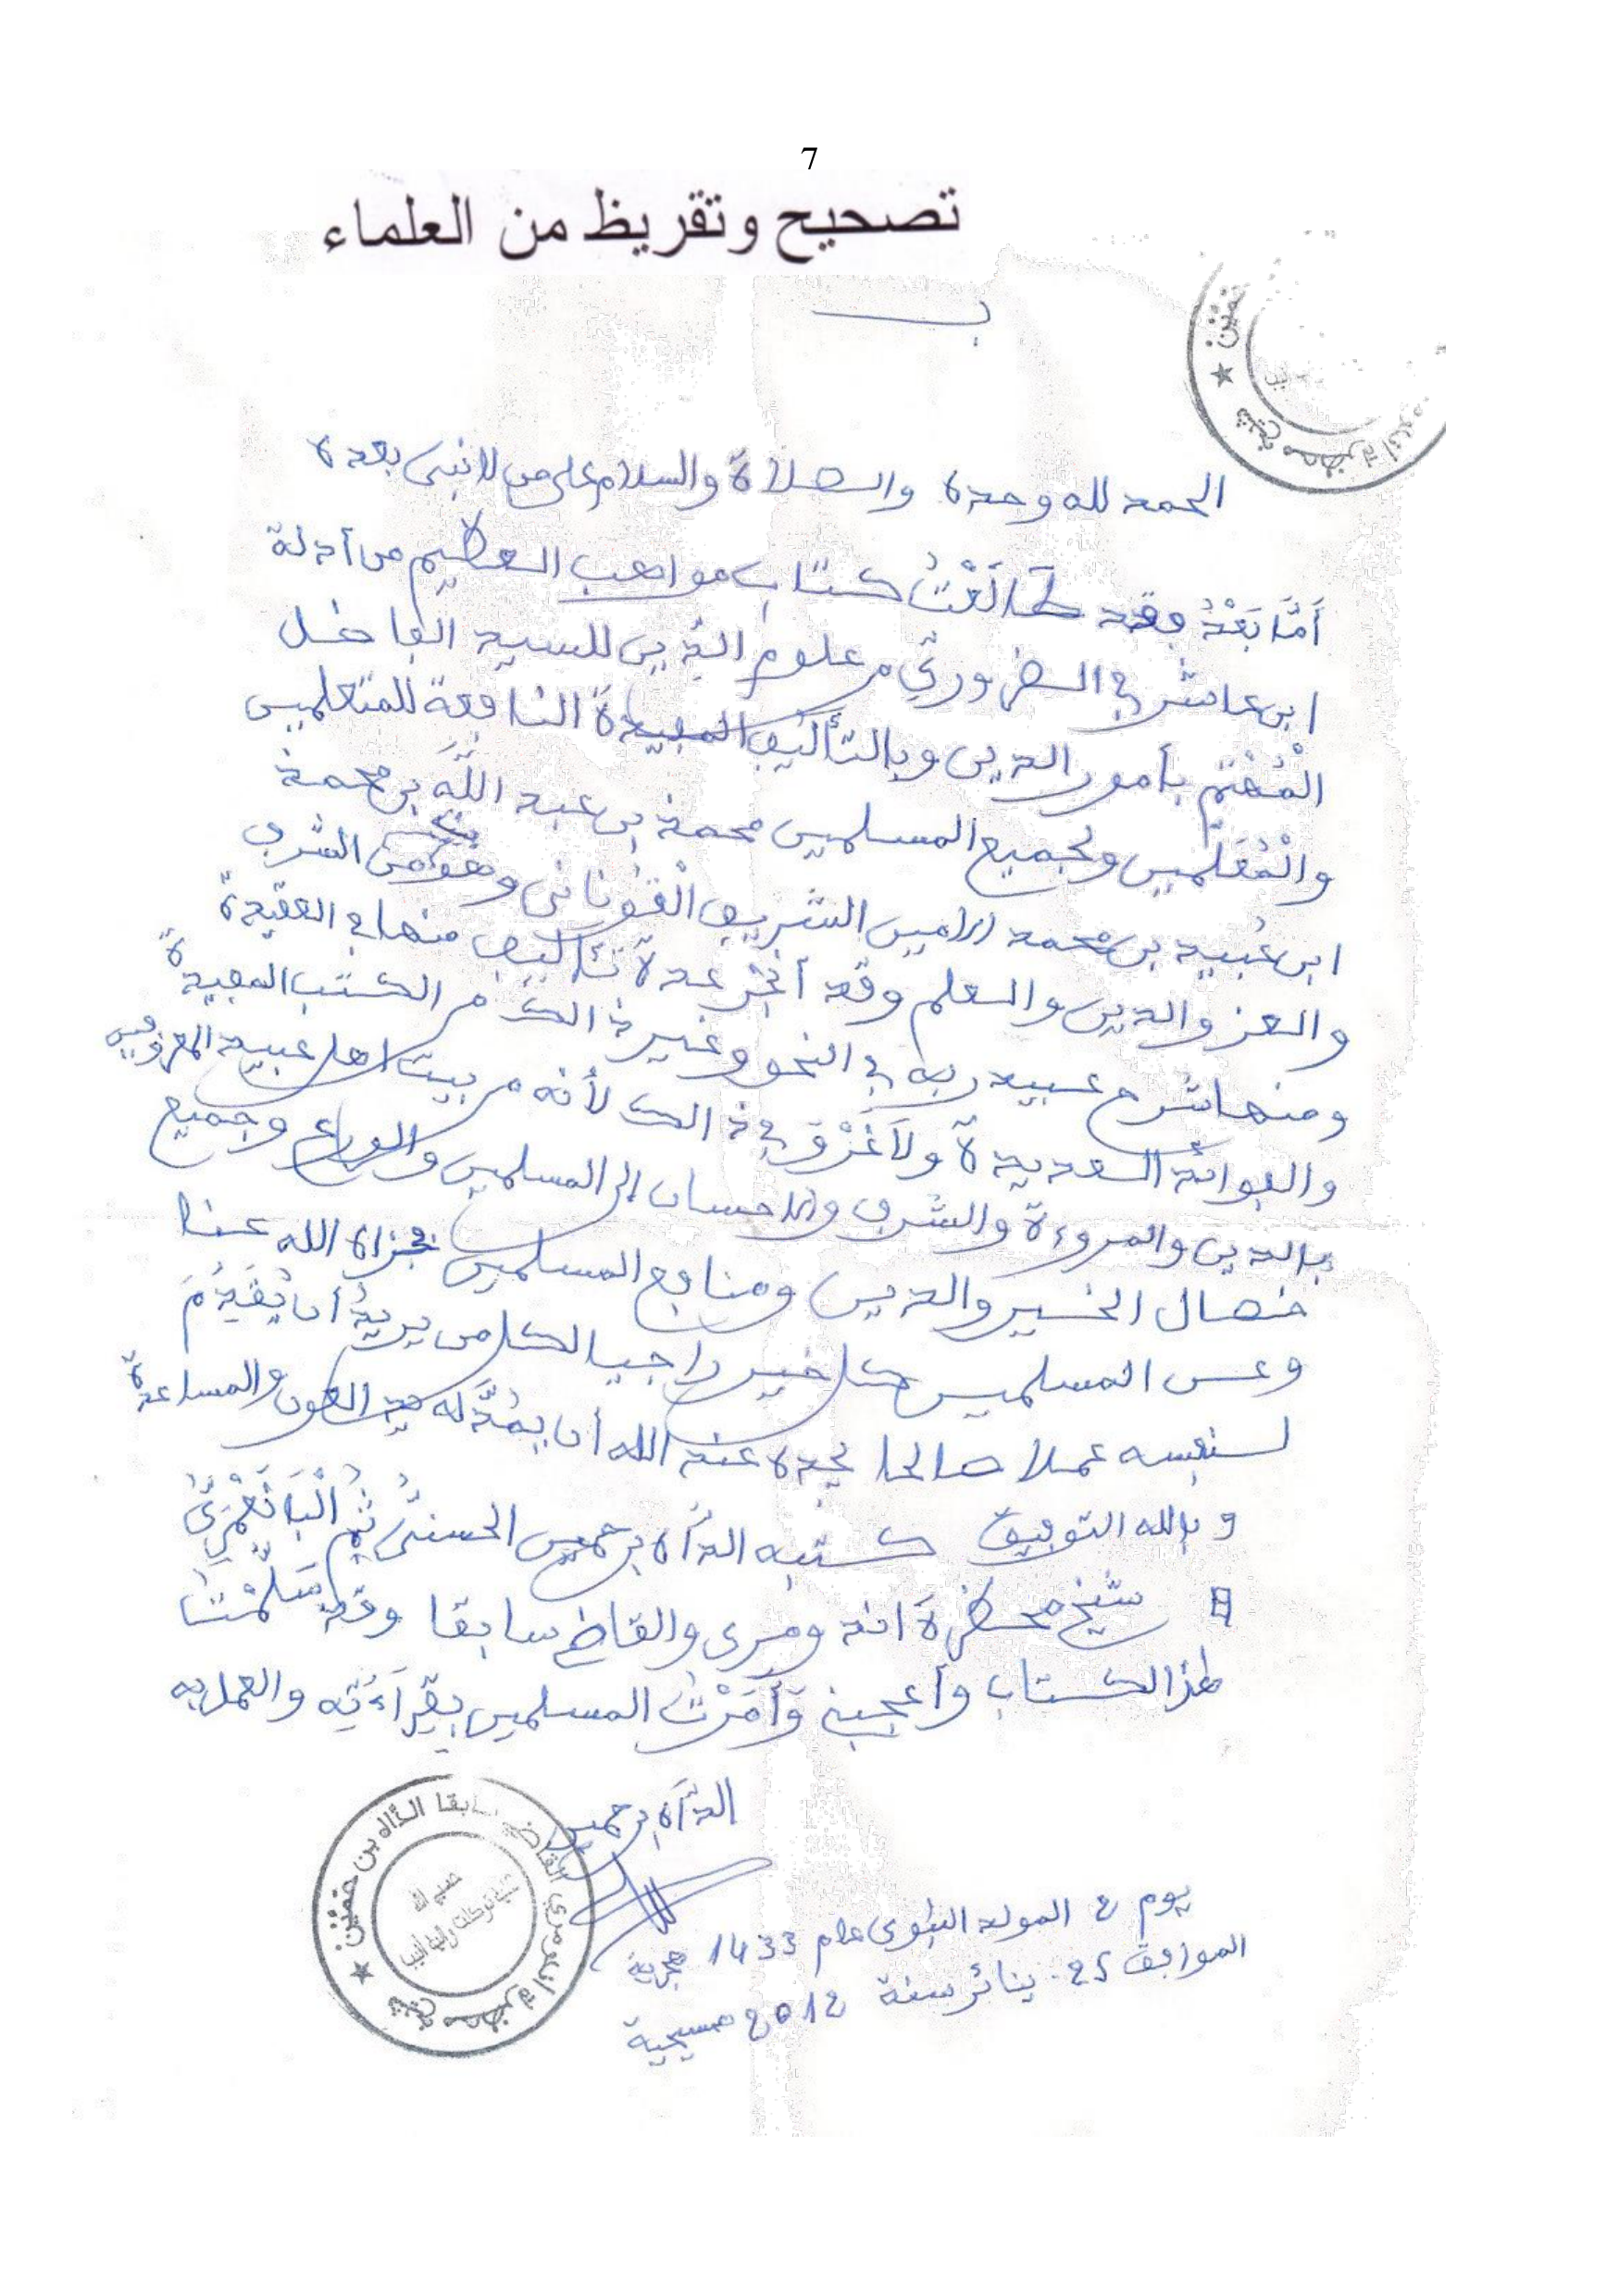 7
تصحيح وتقريظ من العلماء
الحمد لله وحده والصلاة والسلام على من لا نبي بعده
أَمَّا بَعْدُ فقد طَالَعْتُ كتاب مواهب العظيم من أدلة
ابن عاشر في الضروري من علوم الدين للسيد الفاضل
الْمُهْتَمِّ بأمور الدين وبالتأليف المفيدة النافعة للمتعلمين
والْمُعَلمين ولجميع المسلمين محمد بن عبد اللَّه بن محمد
ابن عُبيد بن محمد الامين الشريف الْقَوْنانى وهو من الشرف
والعز والدين والعلم وقد أنجز عدة تئاليف منها في العقيدة
ومنها شرح عبيد ربه في النحو وغير ذالك من الكتب المفيدة
والفوائد العديدة ولا غَرْوَ في ذالك لأنه من بيت اهل عبيد المعروفين
بالدين والمروءة والشرف والاحسان إلى المسلمين والورع وجميع
خصال الخير والدين ومنافع المسلمين فجزاه الله عنا
وعن المسلمين كل خير راجيا لكل من يريد أن يُقَدِّمَ
لنفسه عملا صالحا يجده عند الله أن يمُدَّ له يد العون والمساعدة
وبالله التوفيق كتبه الدَّاه بن حمين الحسنىُّ ثُمَّ الْبَانَعْمَرِىُّ
شيخ محظرة اند ومرى والقاضي سابقا وقد سَلَّمْتُ
هذا الكتاب وأعجبني وَأَمَرْتُ المسلمين بِقِرَاءَتِه والعمل به
الدَّاه بن حمين
يوم 2 المولد النبوى عام 1433 هجرية
الموافق 25 يناير سنة 2012 مسيحية
شيخ محضرة اند ومرى القاضي سابقا الداه بن حمين